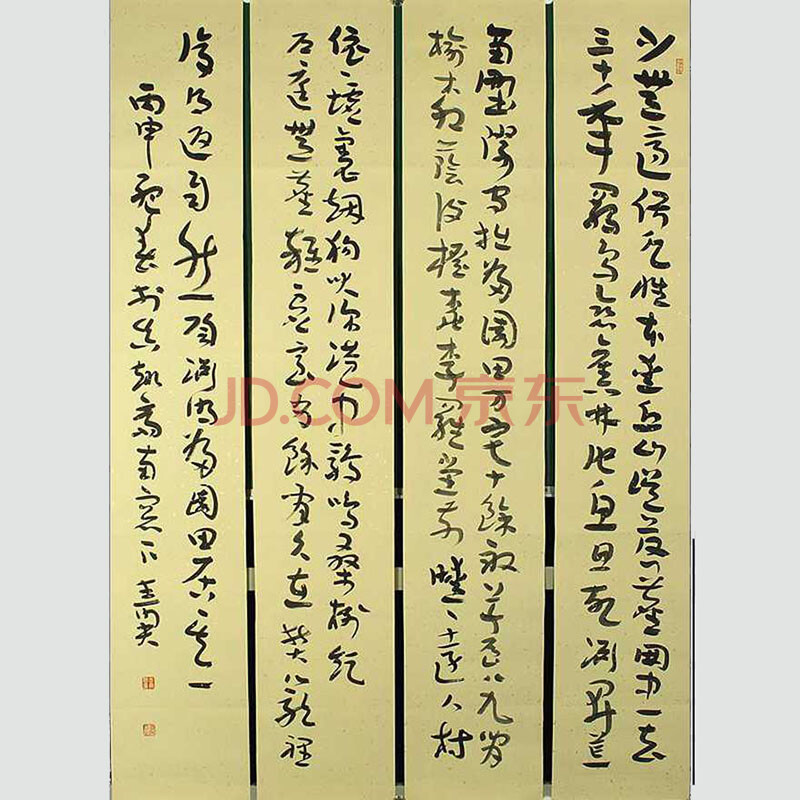 少無適俗韻性本愛丘山誤落塵網中一去
三十年羈鳥戀舊林池魚思故淵開荒
南野際守拙歸園田方宅十餘畝草屋八九間
榆柳蔭後檐桃李羅堂前曖曖遠人村
依依墟里煙狗吠深巷中雞鳴桑樹顛
戶庭無塵雜虛室有餘閑久在樊籠裡
復得返自然陶淵明歸園田居其一
丙申春於齋南窗下
JD.COM 京东